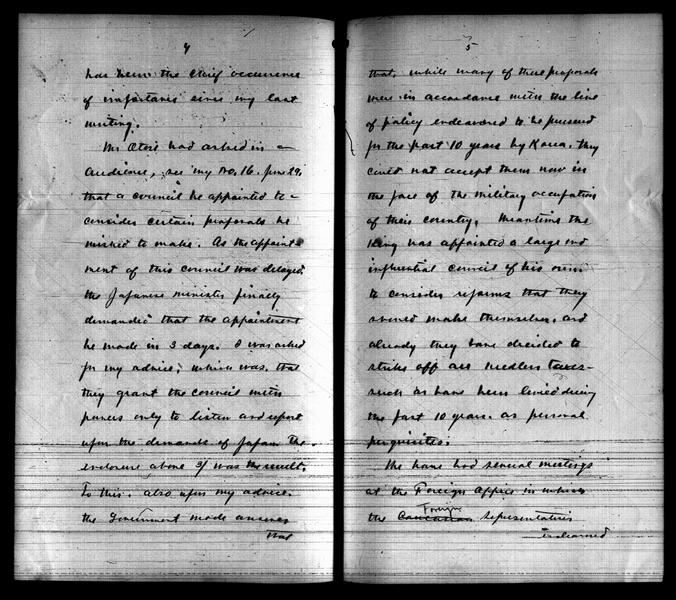 4
has been the chief occurrence
of importance since my last
writing.
Mr Otori had asked in
audience, see my No. 16. June 29,
that a council be appointed to
consider certain proposals he
wished to make. As the appoint-
ment of this council was delayed
the Japanese minister finally
demanded that the appointment
be made in 3 days. I was asked
for my advice, which was, that
they grant the council with
powers only to listen and report
upon the demands of Japan. The
enclosure above 3/ was the result.
To this, also upon my advice,
the Government made answer
that
5
that, while many of these proposals
were in accordance with the line
of policy endeavored to be pursued
for the past 10 years by Korea, they
could not accept them now in
the face of the military occupation
of their country. Meantime the
King has appointed a large and
influential council of his own
to consider reforms that they
would make themselves, and
already they have decided to
strike off all needless taxes
such as have been levied during
the past 10 years, as personal
perquisites.
We have had several meetings
at the Foreign Office in which
the Foreign representatives
endeavored